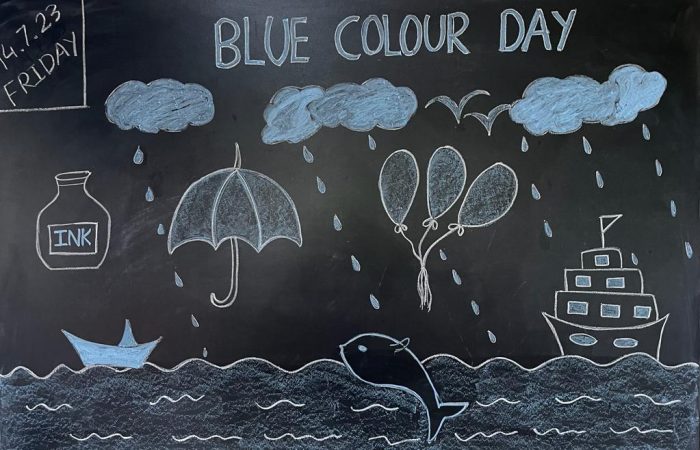 14.7.23
FRIDAY
BLUE COLOUR DAY
INK